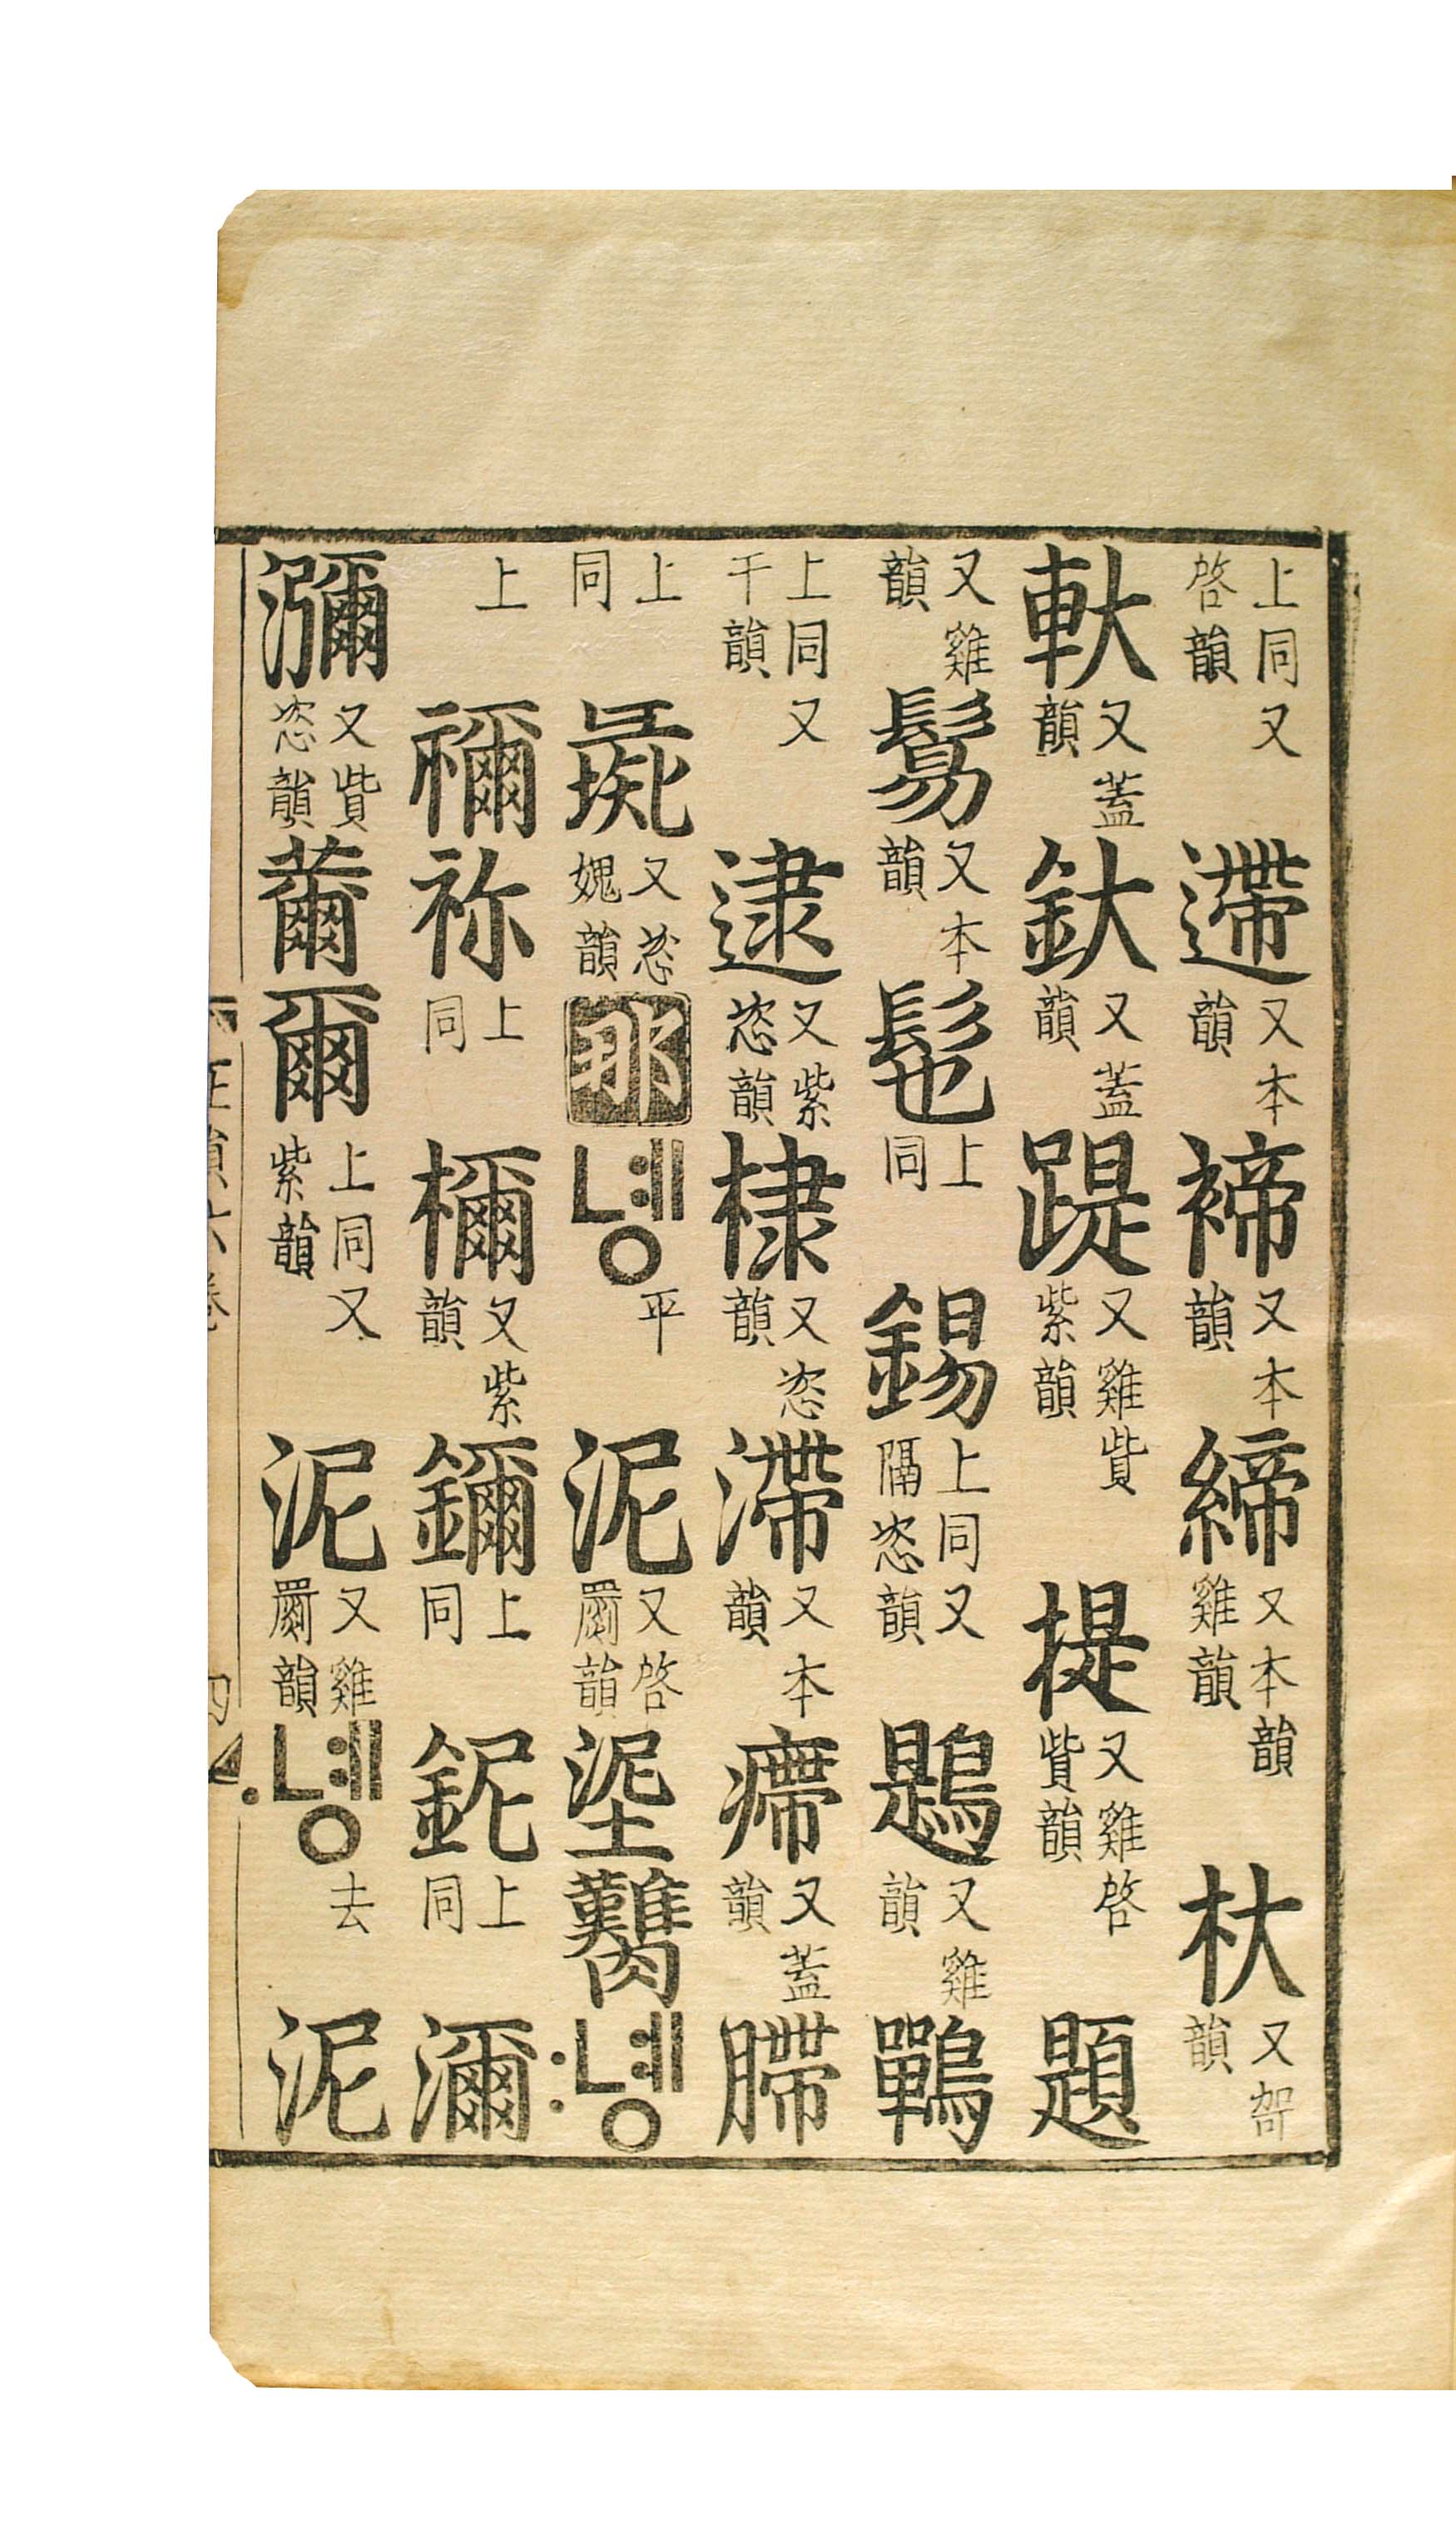 上同又啓韻遰又本韻禘又本韻締又本韻雞韻杕又哿韻
軑又蓋韻釱又蓋韻踶又雞貲紫韻提又雞啓貲韻題
又雞韻鬄又本韻髢上同錫上同又隔恣韻鶗又雞韻鷤
上同又干韻逮又紫恣韻棣又恣韻滯又本韻㿃又蓋韻
上同彘又恣媿韻那녱平泥又啓罽韻埿臡:녱
上禰祢上同檷又紫韻鑈上同鈮上同濔
瀰又貲恣韻薾爾上同又紫韻泥又雞罽韻·녱去泥